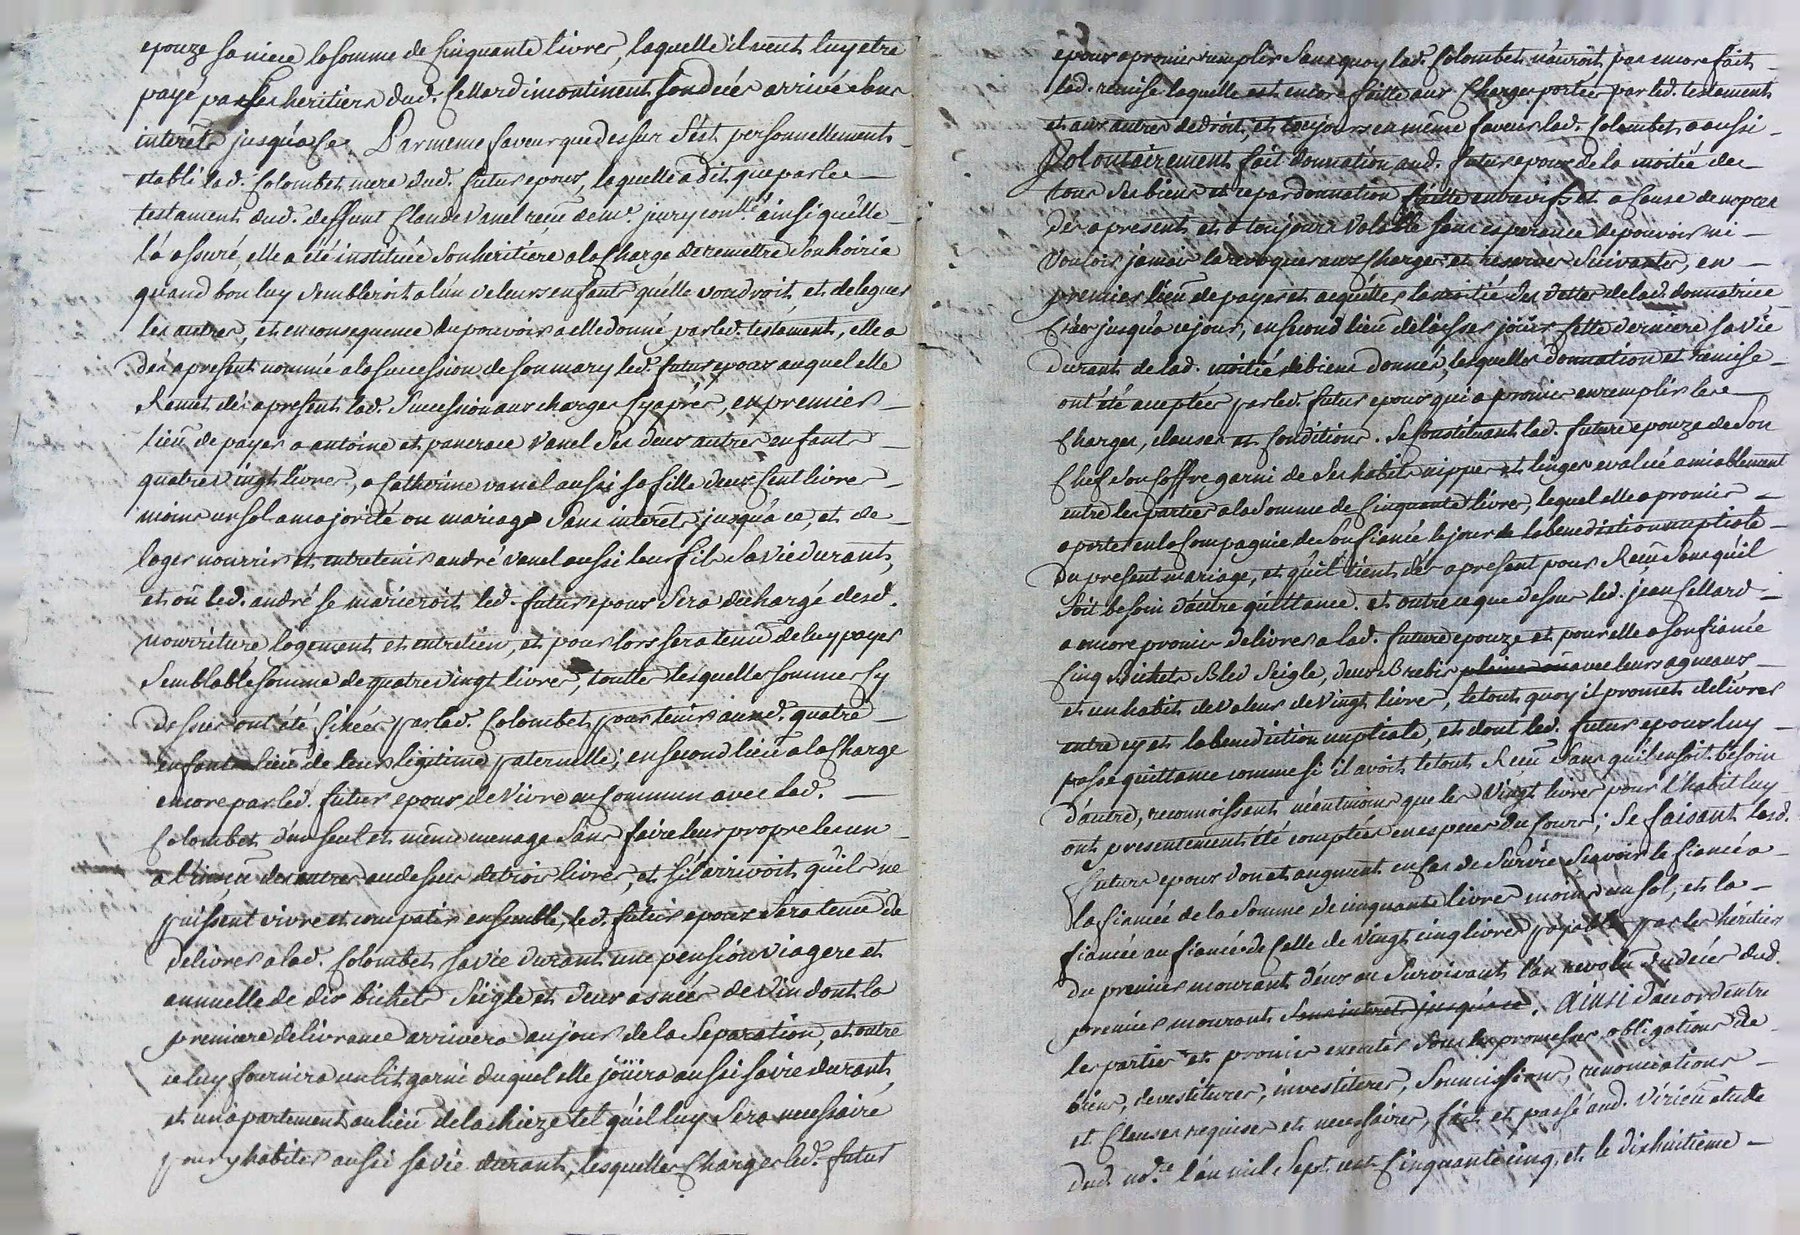 epouze sa niece la somme de Cinquante livres, laquelle il veut luy etre
payé par ses heritiers dud. Cellard incontinent son decés arrivé sans
interets jusqu'a ce. Par meme faveur que dessus s'est personnellement
etabli lad. Colombet mere dud. futur epoux, laquelle a dit que par le
testament dud. deffunt Claude Vanel reçu de me. jury con.lle ainsi qu'elle
l'a assuré, elle a été instituée son heritiere a la charge de remettre son hoirie
quand bon luy sembleroit a l'un de leurs enfants qu'elle voudroit et deleguer
les autres, et en consequence du pouvoir a elle donné par led. testament, elle a
dés a present nommé a la succession de son mary led. futur epoux auquel elle
Remet dés a present lad. Succession aux charges cy aprés, en premier
lieu de payer a antoine et pancrace Vanel ses deux autres enfants
quatre vingt livres, a Catherine vanel aussi sa fille deux Cent livres
moins un sol a majorité ou mariage sans interets jusqu'a ce, et de
loger nourrir et entretenir andré vanel aussi leur fils sa vie durant,
et où led. andré se marieroit led. futur epoux sera dechargé desd.
nourriture logement et entretien, et pour lors sera tenu de luy payer
semblable somme de quatre vingt livres, toutes lesquelles sommes cy
dessus ont été fixées par lad. Colombet pour tenir auxd. quatre
enfants lieu de leurs légitime paternelle; en second lieu a la Charge
encore par led. futur epoux de vivre en commun avec lad.
Colombet d'un seul et même menage sans faire leur propre les un
a l'inscu des autres au dessus de trois livres, et s'il arrivoit qu'ils ne
puissent vivre et compatir ensemble, led. futur epoux sera tenu de
delivrer a lad. Colombet sa vie durant une pension viagere et
annuelle de dix bichets seigle et deux asnées de vin dont la
premiere delivrance arrivera au jour de la separation, et outre
ce luy fournira un lit garni duquel elle jouira aussi sa vie durant
et un apartement au lieu de la chieze tel qu'il luy sera necessaire
pour y habiter aussi sa vie durant, lesquelles Charges led. futur
epoux a promis remplir sans quoy lad. Colombet n'auroit pas encore fait
lad. remise laquelle est encore faitte aux Charges portées par led. testament
et aux autres de droit, et toujours en même faveur lad. Colombet a aussi
Volontairement fait donnation aud. futur epoux de la moitié de
tous ses biens et ce par donnation faitte entre vifs et a cause de nopces
dés a present et a toujours valable sans esperance de pouvoir ni
vouloir jamais la revoquer aux Charges et reserves suivantes, en
premier lieu de payer et acquitter la moitié des dettes de lad. donnatrice
Crées jusqu'a ce jour, en second lieu de laisser jouir cette derniere sa vie
durant de lad. moitié de biens donnés, lesquelles donnation et remise
ont été acceptées par led. futur epoux qui a promis en remplir les
charges, clauses et conditions. Se constituant lad. future epouze de son
Chef d'un coffre garni de ses habits nippes et linges evalué amiablement
entre les parties a la somme de Cinquante livres, lequel elle a promis
aporter en la Compagnie de son fiancé le jour de la benediction nuptiale
du present mariage, et qu'il tient des a present pour Reçu sans qu'il
soit besoin d'autre quittance. et outre ce que dessus led. jean Cellard
a encore promis delivrer a lad. future epouze et pour elle a son fiancé
Cinq bichets Bled seigle, deux Brebis pleine ou avec leurs agneaux
et un habit de valeur de vingt livres, le tout quoy il promet delivrer
entre cy et la benediction nuptiale, et dont led. futur epoux luy
passe quittance comme si il avoit le tout Reçu sans qu'il en soit besoin
d'autre, reconnoissant néantmoins que les Vingt livres pour l'habit luy
ont presentement été comptées en especes du Cours; Se faisant lesd.
futurs epoux don et augment en cas de survie sçavoir le fiancé a
la fiancée de la somme de cinquante livres moins un sol, et la
fiancée au fiancé de Celle de vingt cinq livres payable par les héritiers
du premier mourant d'eux au survivant l'an revolu du decés dud.
premier mourant sans interets jusqu'a ce. Ainsi d'accord entre
les parties et promis executer sous les promesses obligations de
biens, devestitures, investitures, soumissions, renonciations
et Clauses requises et necessaires, fait et passé aud. Virieu etude
dud. no.re l'an mil sept cent Cinquante cinq, et le dixhuitieme